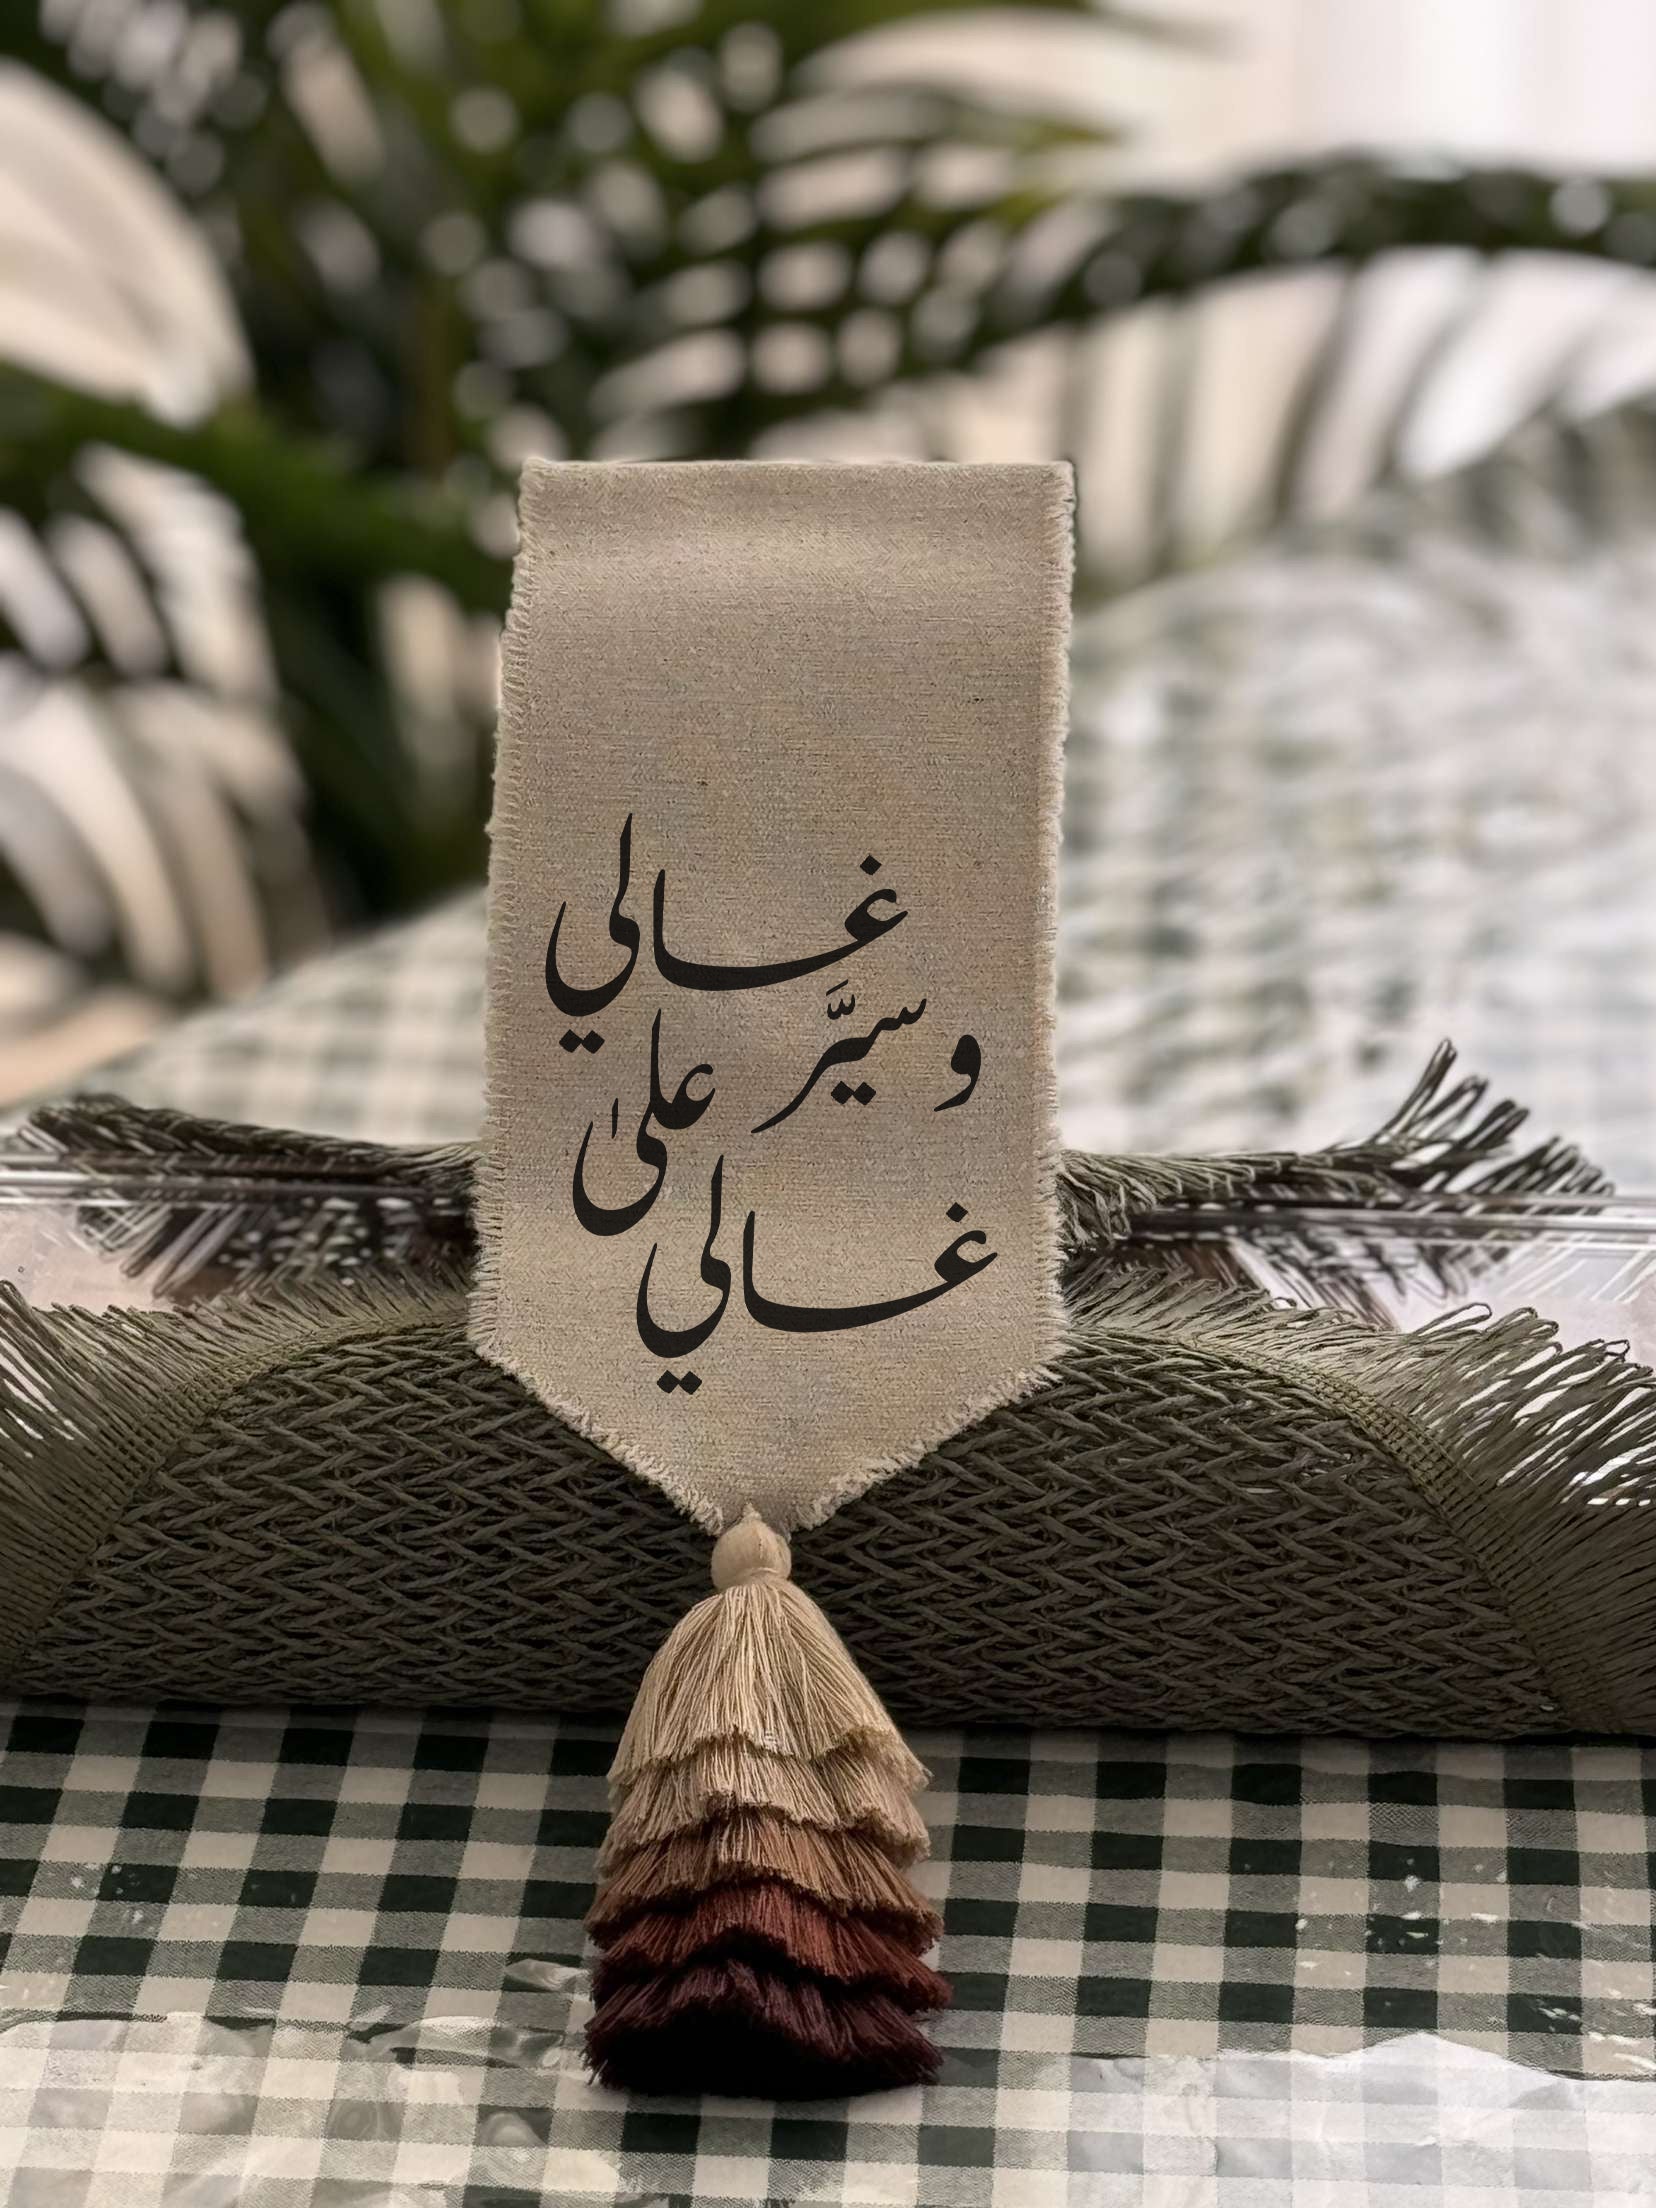 غالي
وسيَّر علىٰ
غالي